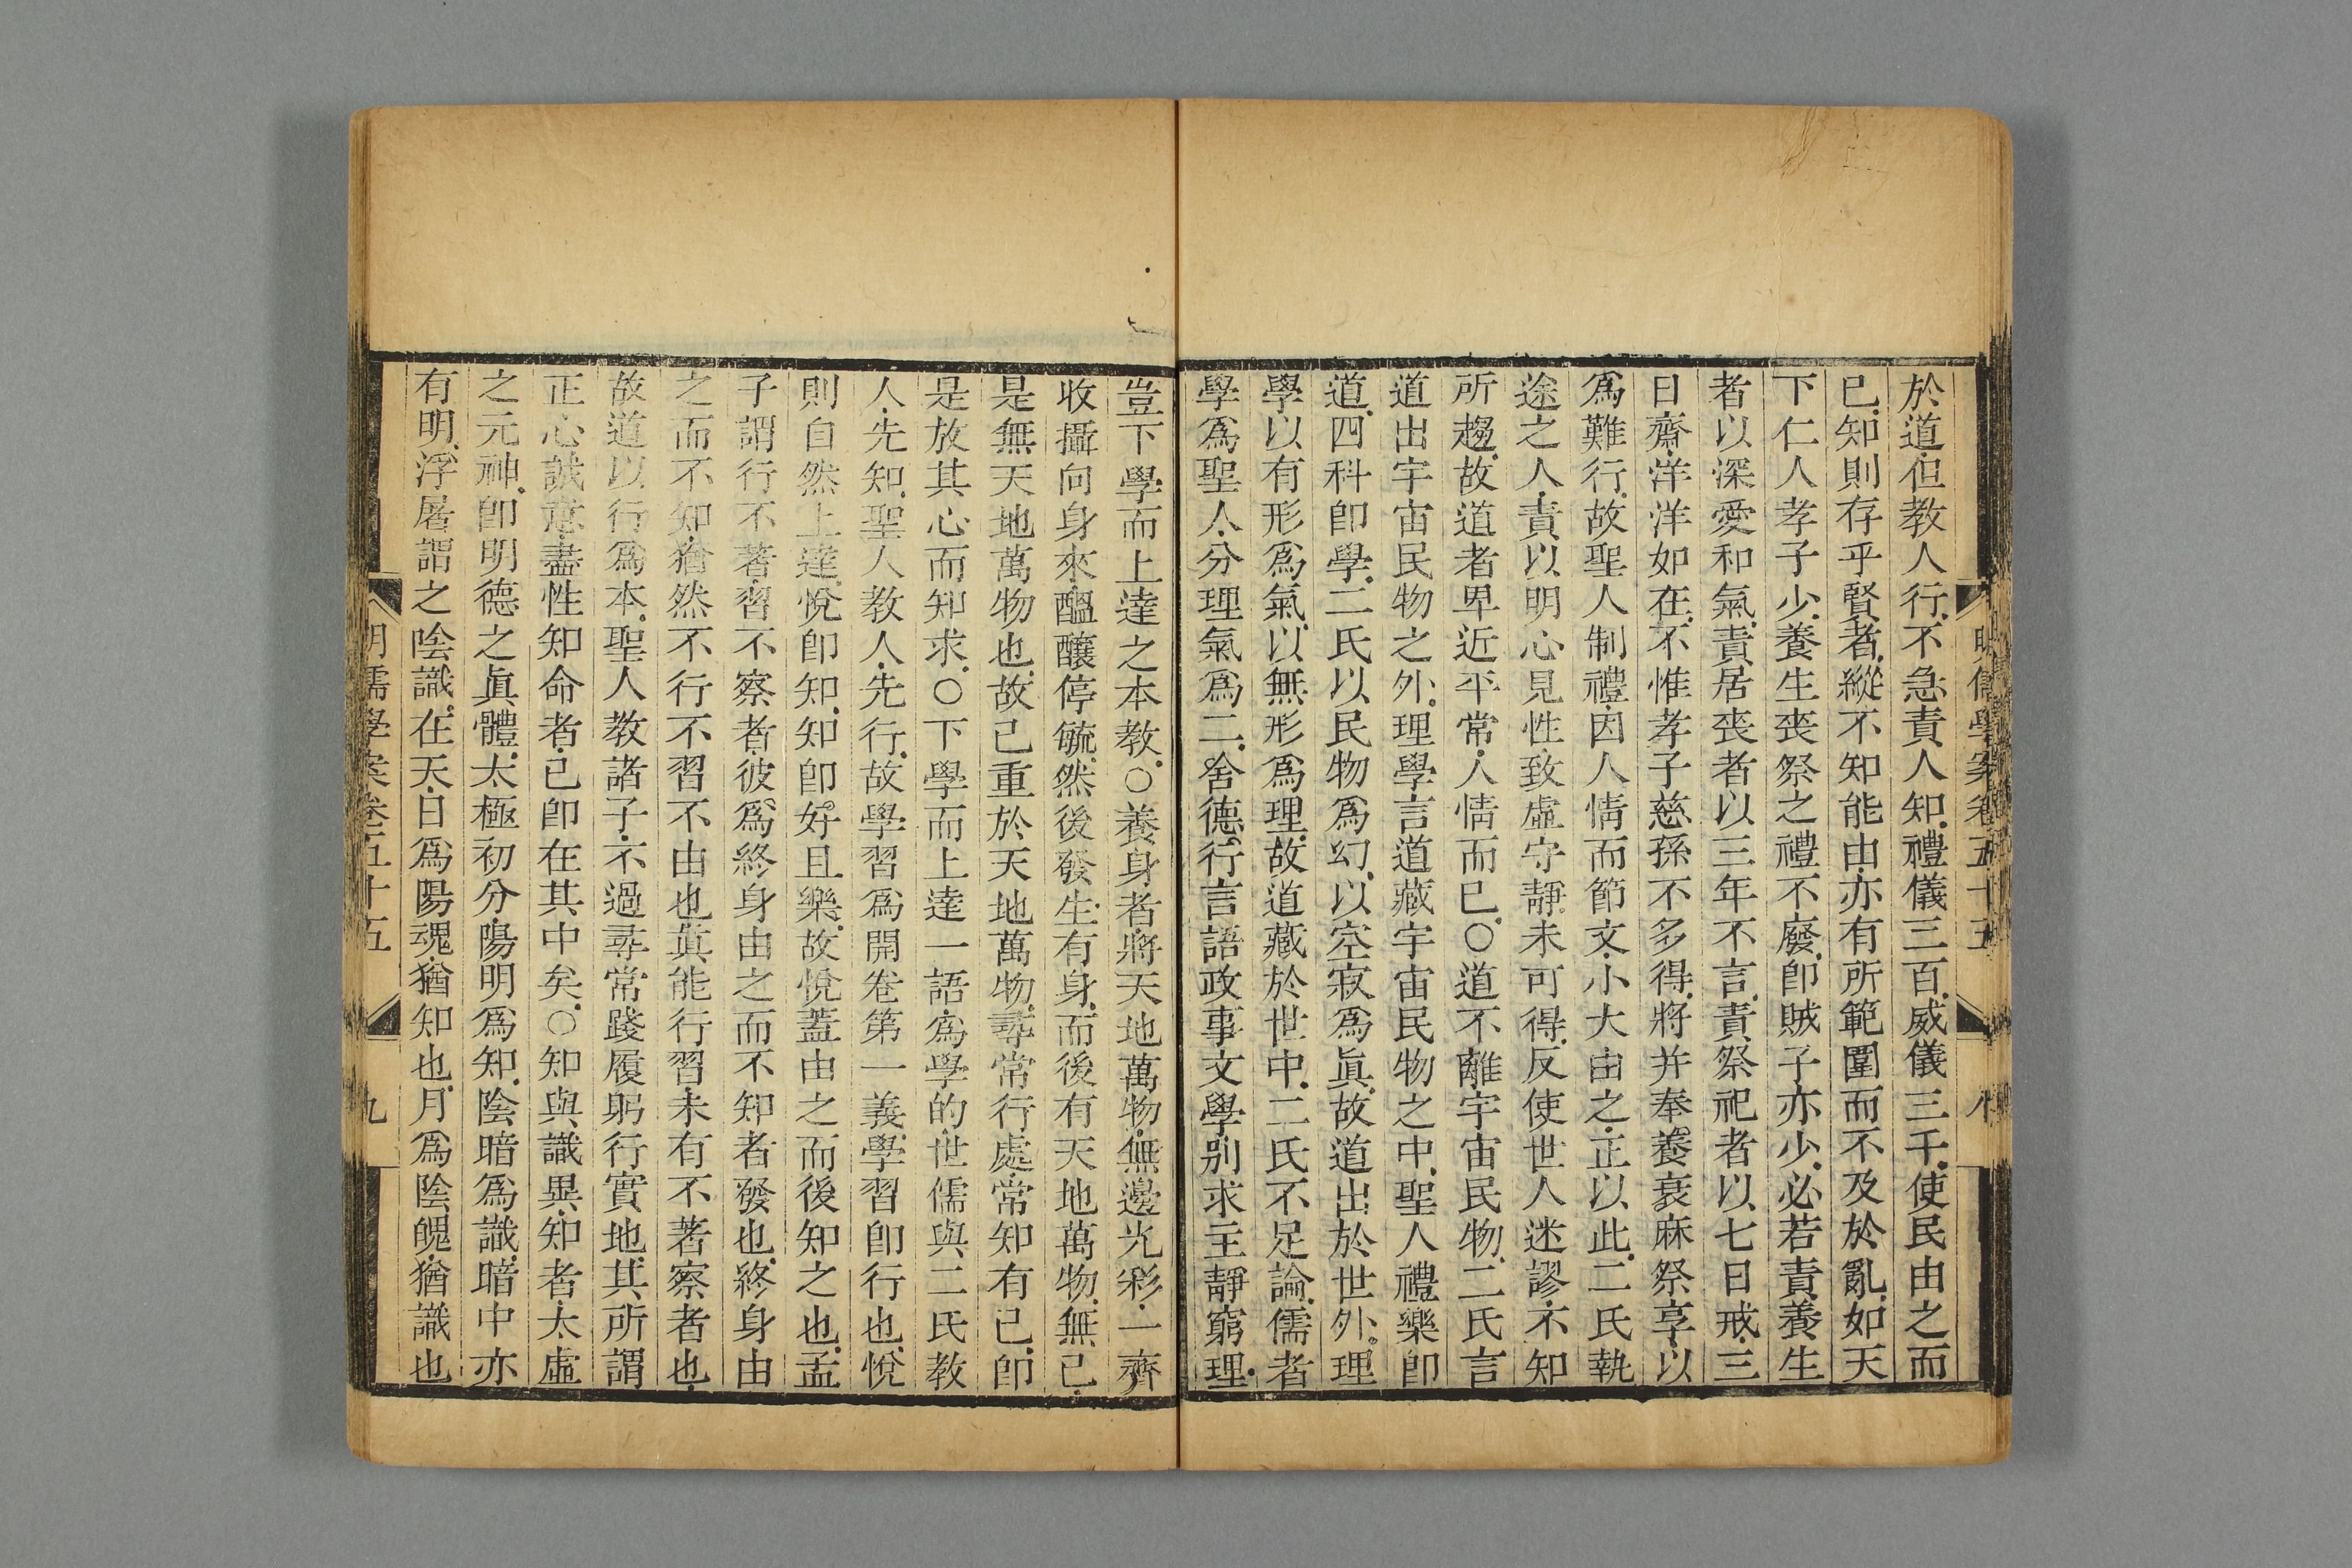 明儒學案卷五十五 八
於道但教人行不急責人知禮儀三百威儀三千使民由之而
已知則存乎賢者縱不知能由亦有所範圍而不及於亂如天
下仁人孝子少養生喪祭之禮不廢卽賊子亦少必若責養生
者以深愛和氣責居喪者以三年不言責祭祀者以七日戒三
日齋洋洋如在不惟孝子慈孫不多得將并奉養衰麻祭享以
爲難行故聖人制禮因人情而節文小大由之正以此二氏執
途之人責以明心見性致虛守靜未可得反使世人迷謬不知
所趨故道者卑近平常人情而已○道不離宇宙民物二氏言
道出宇宙民物之外理學言道藏宇宙民物之中聖人禮樂卽
道四科卽學二氏以民物爲幻以空寂爲眞故道出於世外理
學以有形爲氣以無形爲理故道藏於世中二氏不足論儒者
學爲聖人分理氣爲二舍德行言語政事文學別求主靜窮理
豈下學而上達之本教○養身者將天地萬物無邊光彩一齊
收攝向身來醞釀停毓然後發生有身而後有天地萬物無己
是無天地萬物也故己重於天地萬物尋常行處常知有己卽
是放其心而知求○下學而上達一語爲學的世儒與二氏教
人先知聖人教人先行故學習爲開卷第一義學習卽行也悅
則自然上達悅卽知知卽好且樂故悅蓋由之而後知之也孟
子謂行不著習不察者彼爲終身由之而不知者發也終身由
之而不知猶然不行不習不由也眞能行習未有不著察者也
故道以行爲本聖人教諸子不過尋常踐履躬行實地其所謂
正心誠意盡性知命者己卽在其中矣○知與識異知者太虛
之元神卽明德之眞體太極初分陽明爲知陰暗爲識暗中亦
有明浮屠謂之陰識在天日爲陽魂猶知也月爲陰魄猶識也
明儒學案卷五十五 九